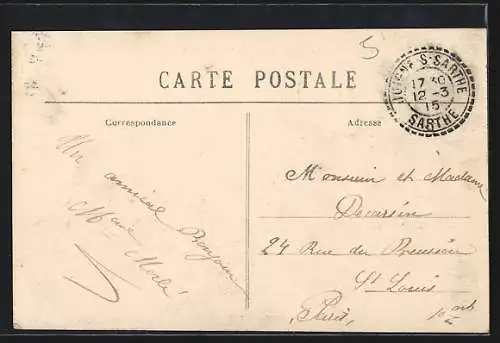 5
CARTE POSTALE
JUIGNÉ-S-SARTHE
17 30
12 - 3
15
SARTHE
Correspondance
Adresse
Un amical Bonjour
Marie
Monsieur et Madame
24 Rue du
St Louis
Paris